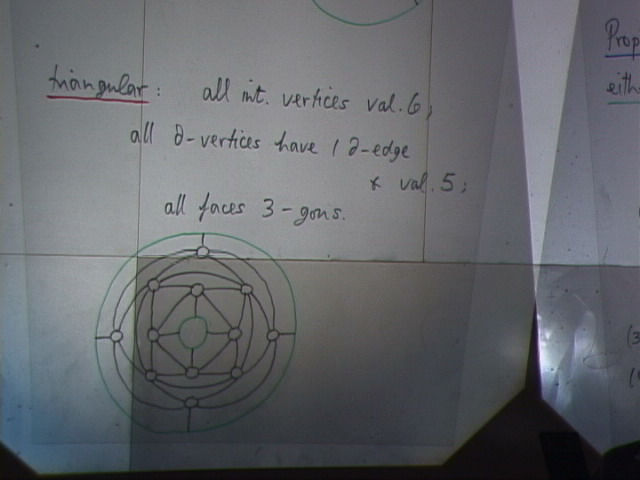 triangular: all int. vertices val. 6;
all ∂-vertices have 1 ∂-edge
& val. 5;
all faces 3-gons.
Prop
eith
(3